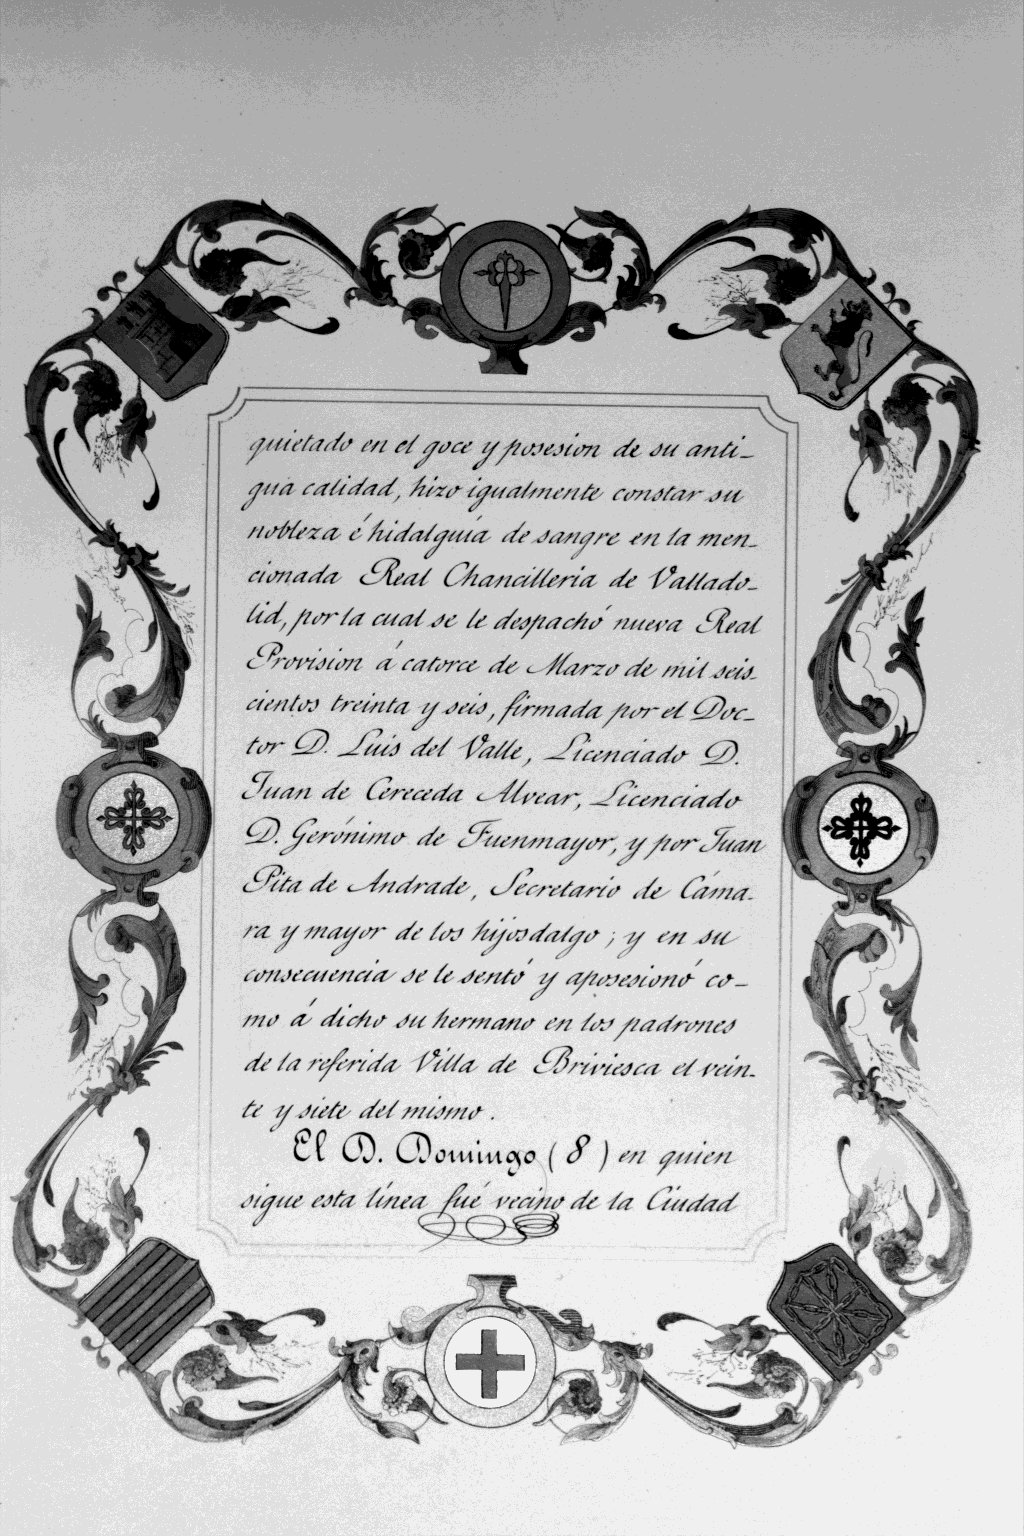 quietado en el goce y posesion de su anti-
gua calidad, hizo igualmente constar su
nobleza é hidalguía de sangre en la men-
cionada Real Chancilleria de Vallado-
lid, por la cual se le despachó nueva Real
Provision á catorce de Marzo de mil seis-
cientos treinta y seis, firmada por el Doc-
tor D. Luis del Valle, Licenciado D.
Juan de Cereceda Alvear, Licenciado
D. Gerónimo de Fuenmayor, y por Juan
Pita de Andrade, Secretario de Cáma-
ra y mayor de los hijosdalgo; y en su
consecuencia se le sentó y aposesionó co-
mo á dicho su hermano en los padrones
de la referida Villa de Briviesca el vein-
te y siete del mismo.
El D. Domingo (8) en quien
sigue esta línea fué vecino de la Ciudad